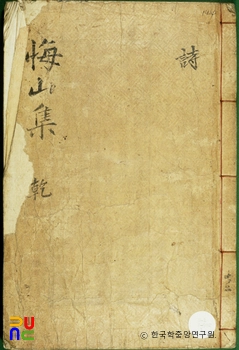 詩
悔山集
乾
© 한국학중앙연구원